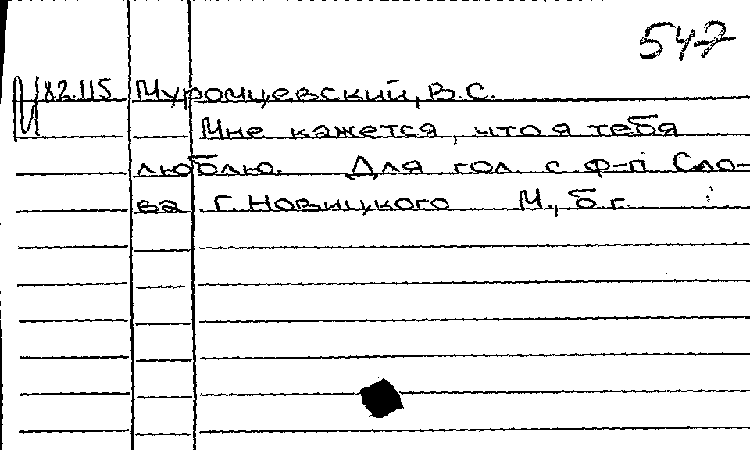 547
И82.115 Муромцевский, В.С.
Мне кажется, что я тебя
люблю. Для гол. с ф-п. Сло-
ва Г. Новицкого М., б.г.